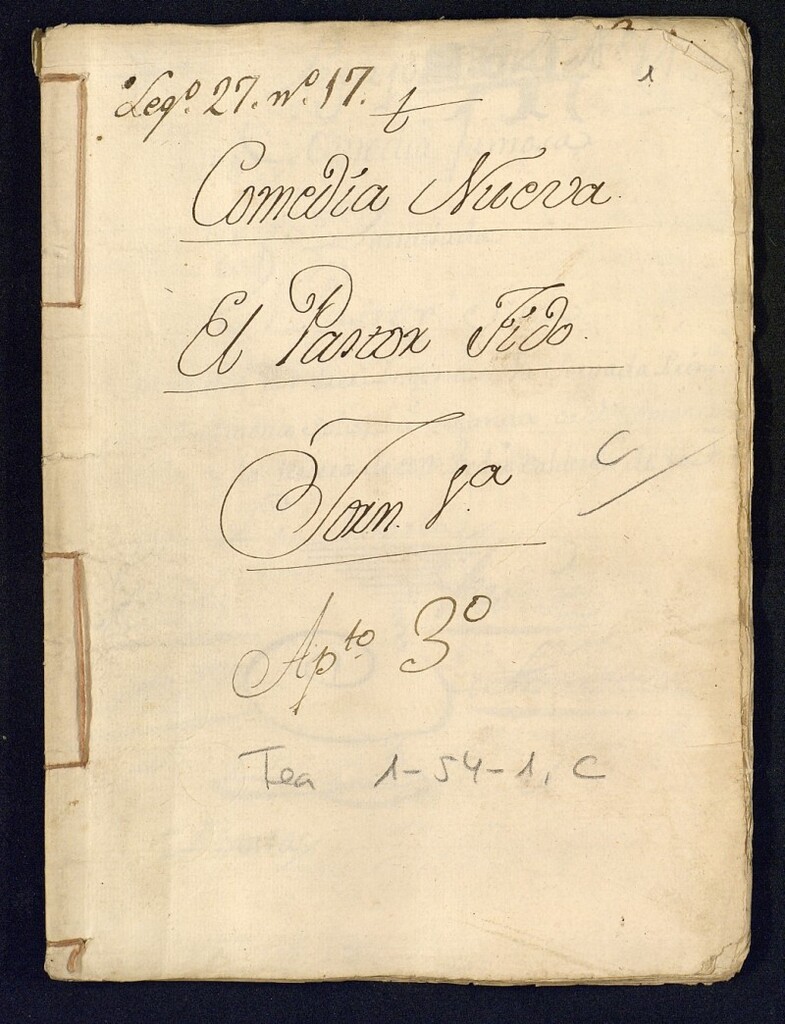 Legº. 27. nº. 17.
1
Comedia Nueva.
El Pastor Fido.
Jorn. 1.ª
C
Apto 3º
Tea 1-54-1, C